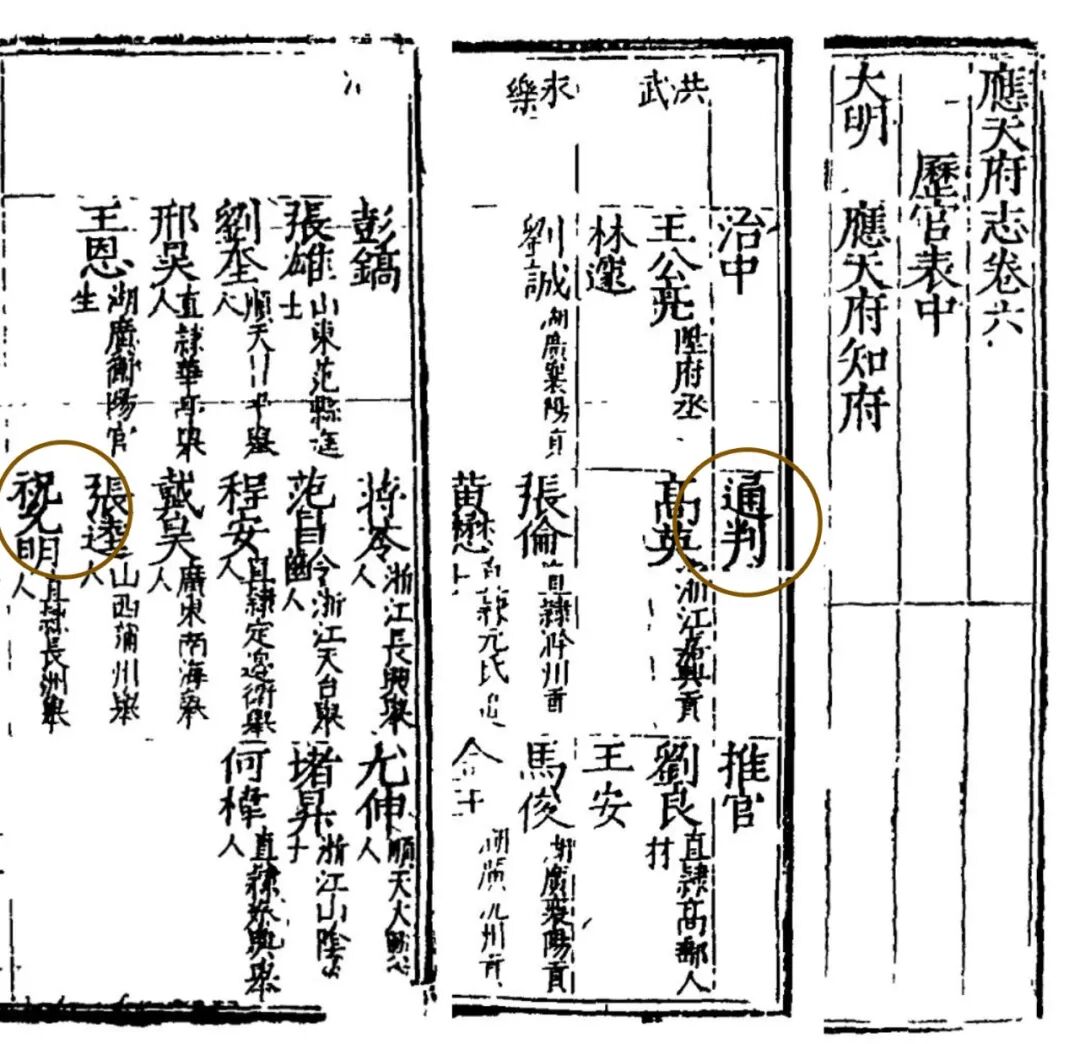 應天府志卷六
歷官表中
大明 應天府知府
洪武
永樂
治中
王公亮 陞府丞
林邃
劉誠 湖廣襄陽貢
通判
高英 浙江嘉興貢
張倫 直隸祁州貢
黃懋 直隸元氏
推官
劉良 直隸高郵人材
王安
馬俊 湖廣襄陽貢
彭鏞
張雄 山東范縣進士
劉奎 順天 舉人
邢昊 直隸華亭舉人
王恩 湖廣衡陽官生
蔣苓 浙江長興舉人
范昌齡 浙江天台舉人
程安 直隸定邊衛舉人
戴昊 廣東南海舉人
張逵 山西蒲州舉人
祝允明 直隸長洲舉人
尤伸 順天大興 人
堵昇 浙江山陰 士
何樟 直隸 興舉人